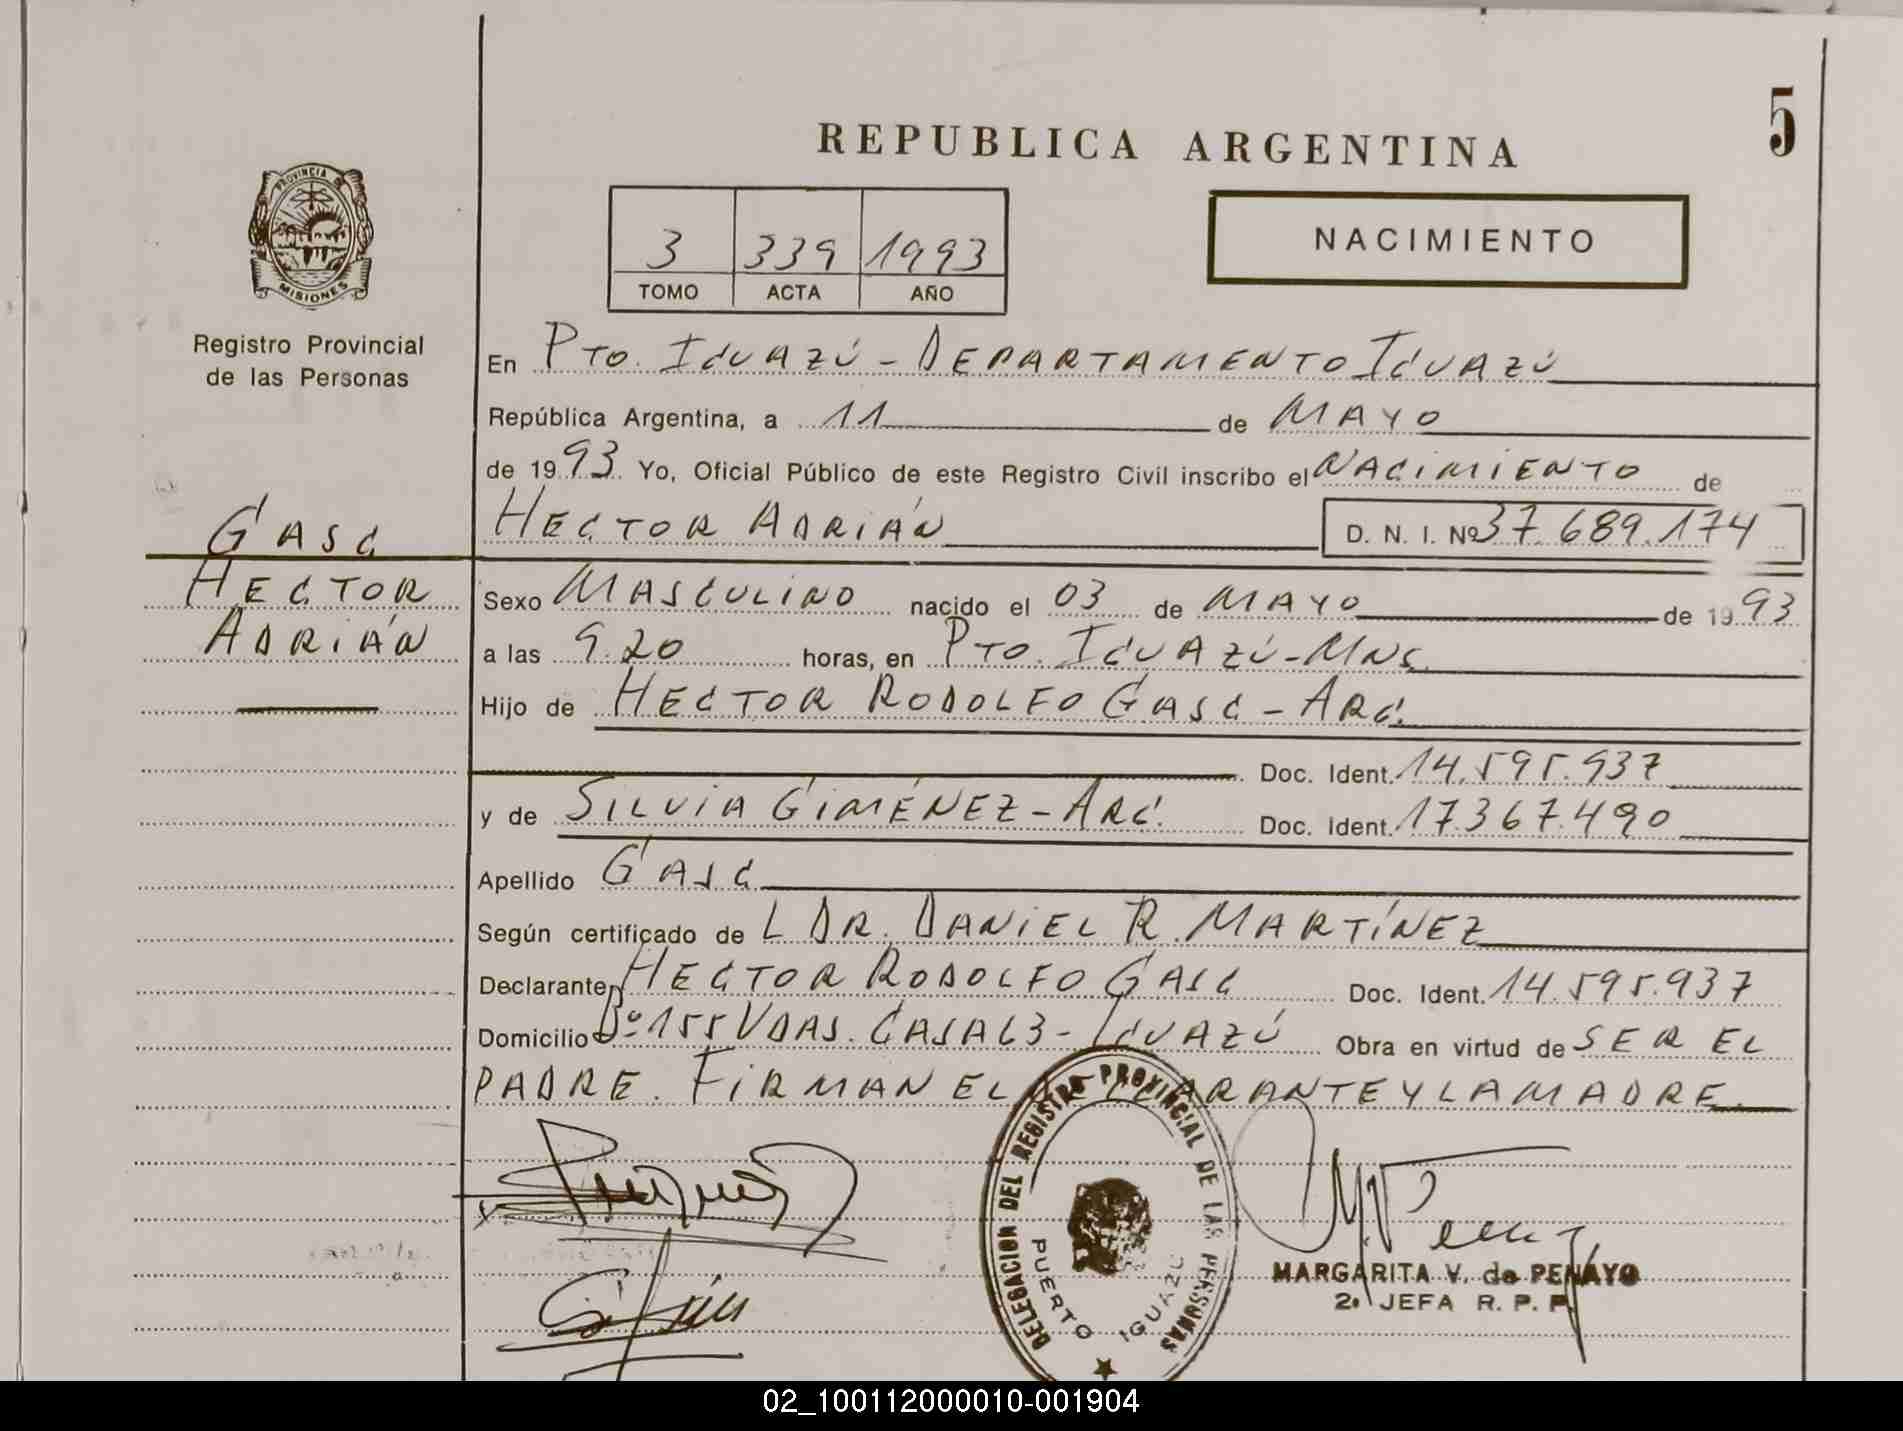 5
REPUBLICA ARGENTINA
PROVINCIA DE
MISIONES
Registro Provincial
de las Personas
3 339 1993
TOMO ACTA AÑO
NACIMIENTO
En PTO. IGUAZÚ - DEPARTAMENTO IGUAZÚ
República Argentina, a 11 de MAYO
de 1993 Yo, Oficial Público de este Registro Civil inscribo el NACIMIENTO de
GASC
HECTOR
ADRIÁN
HECTOR ADRIÁN D. N. I. Nº 37.689.174
Sexo MASCULINO nacido el 03 de MAYO de 1993
a las 9.20 horas, en PTO. IGUAZÚ - MNS.
Hijo de HECTOR RODOLFO GASC - ARG.
Doc. Ident. 14.595.937
y de SILVIA GIMÉNEZ - ARG. Doc. Ident. 17.367.490
Apellido GASC
Según certificado de L DR. DANIEL R. MARTÍNEZ
Declarante HECTOR RODOLFO GASC Doc. Ident. 14.595.937
Domicilio Bº 155 VDAS. CASA 63 - IGUAZÚ Obra en virtud de SER EL
PADRE. FIRMAN EL DECLARANTE Y LA MADRE.
DELEGACION DEL REGISTRO PROVINCIAL DE LAS PERSONAS
PUERTO IGUAZU
MARGARITA V. de PENAYO
2º JEFA R. P. P.
02_100112000010-001904